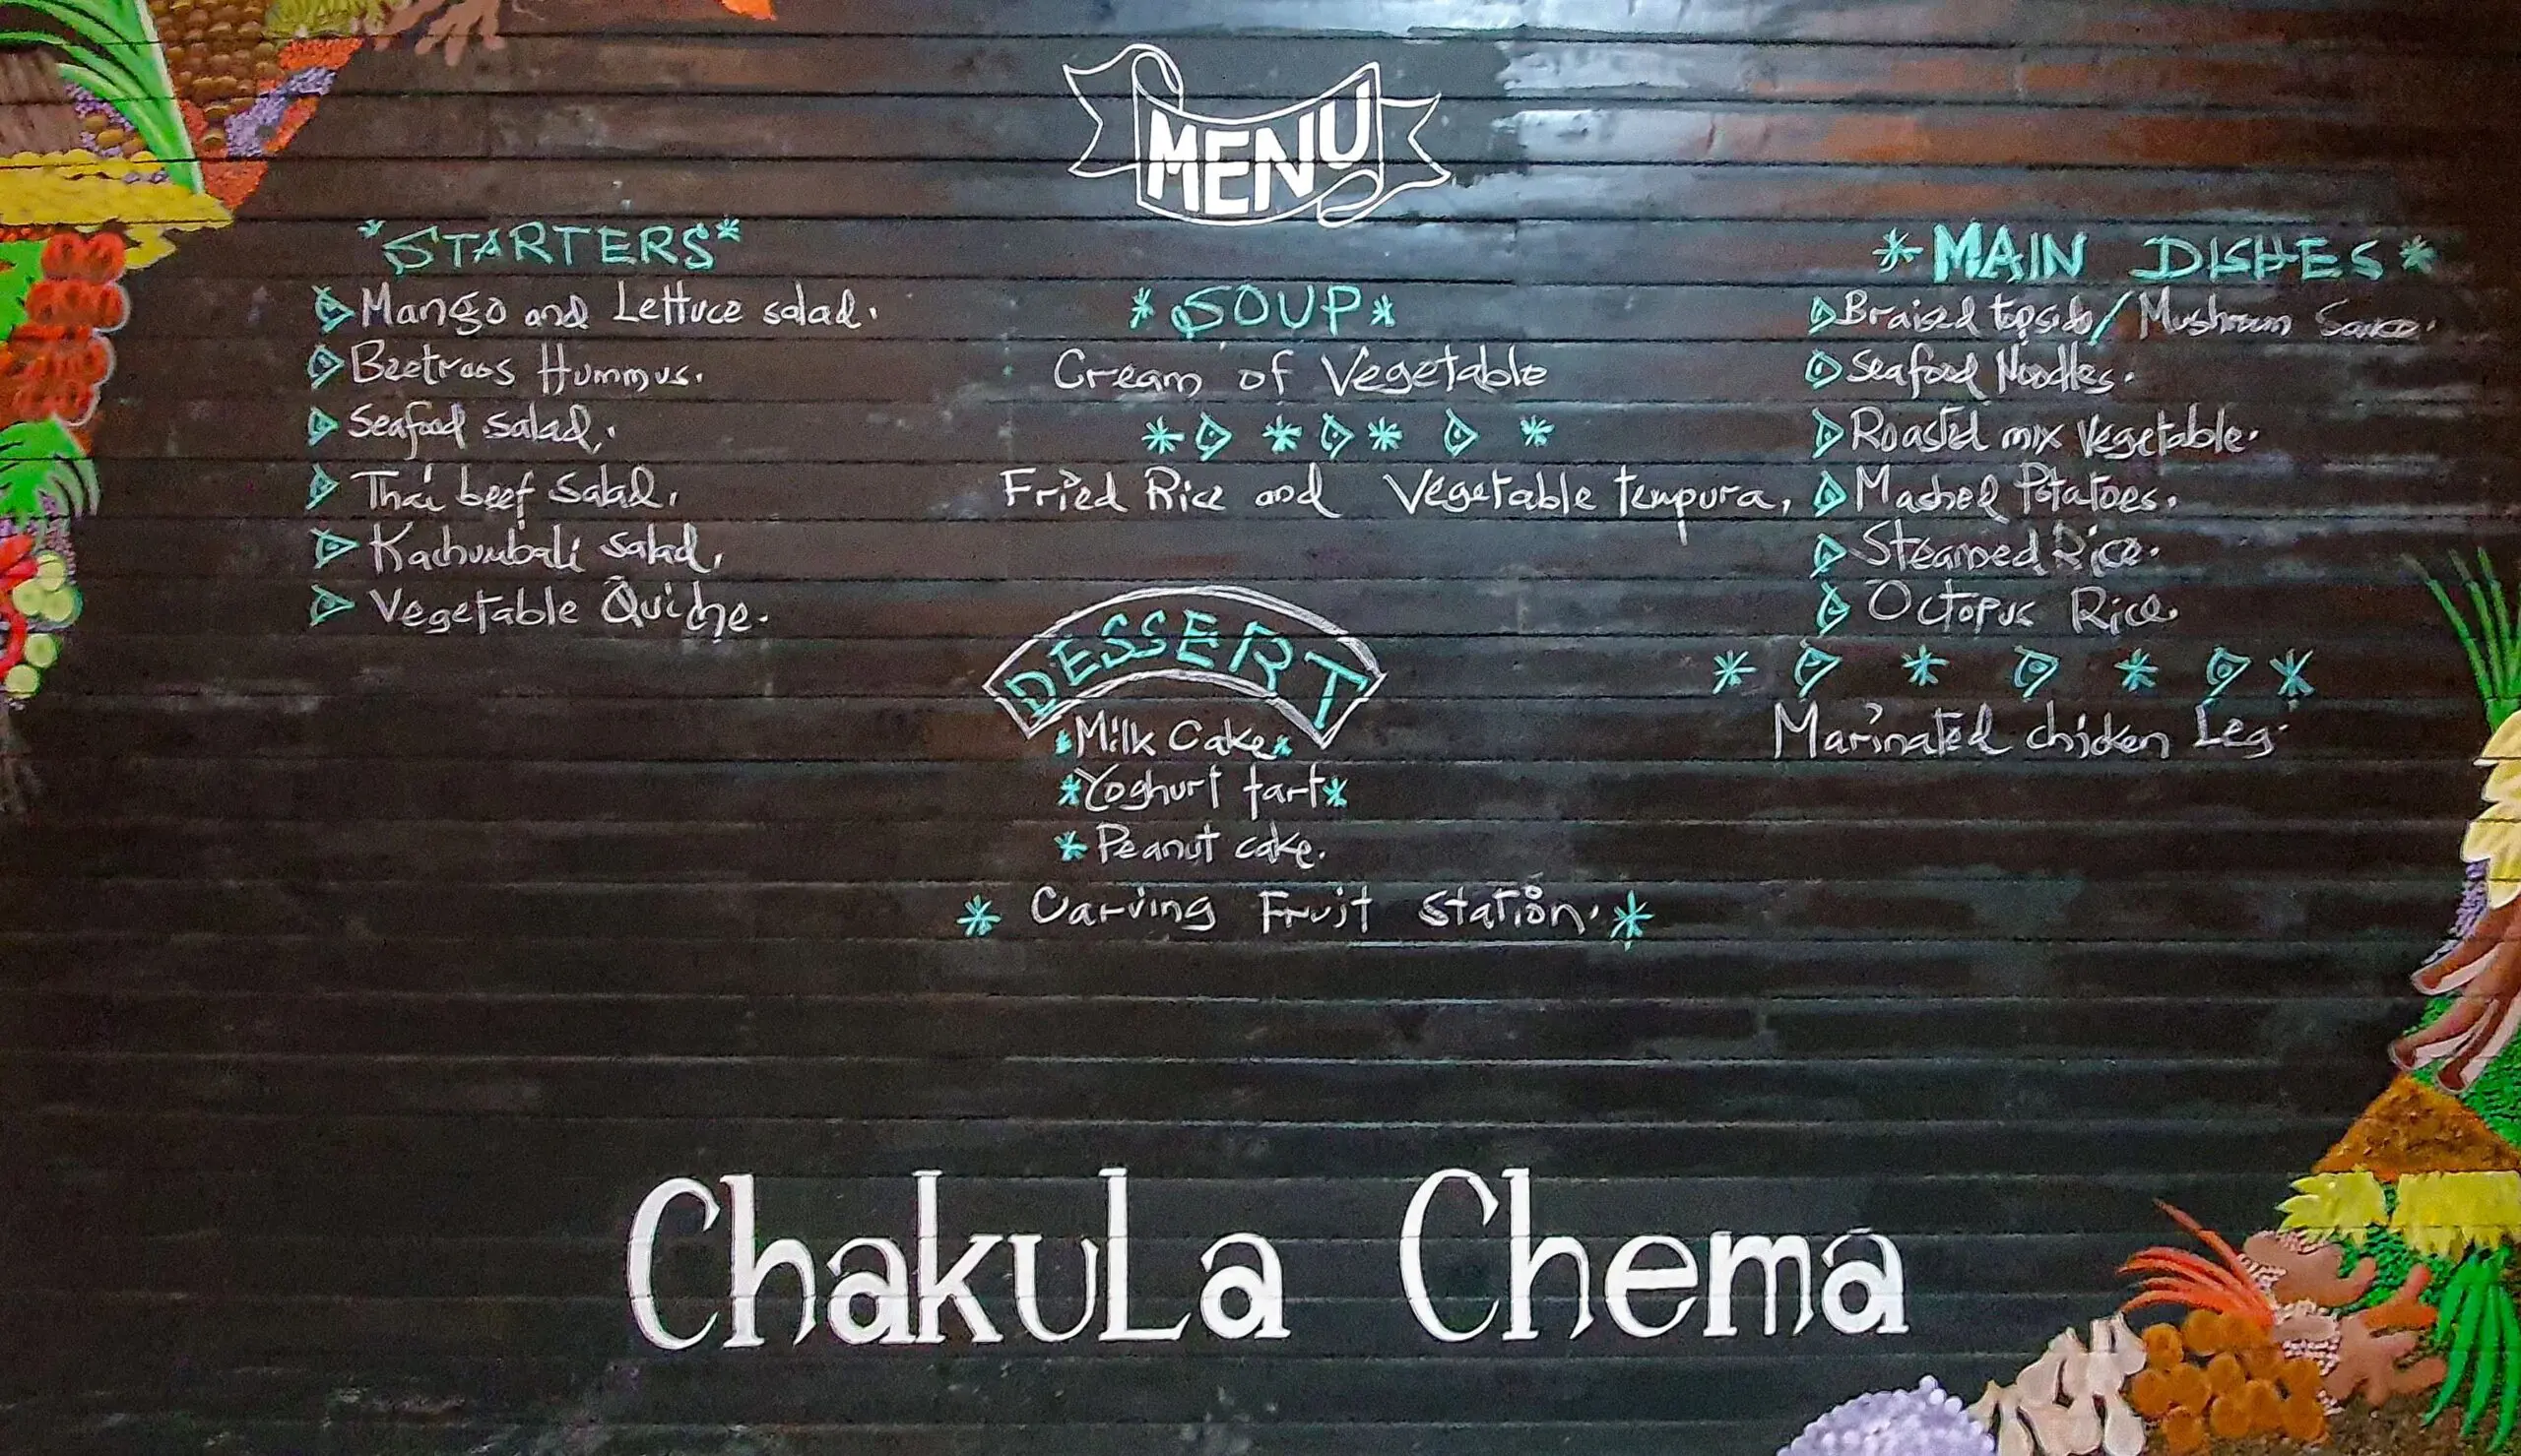 MENU
*STARTERS*
Mango and Lettuce salad.
Beetroos Hummus.
Seafood salad.
Thai beef Salad.
Kachumbali salad.
Vegetable Quiche.
*SOUP*
Cream of Vegetable
Fried Rice and Vegetable tempura,
DESSERT
*Milk Cake*
*Yoghurt tart*
*Peanut cake.
* Carving Fruit Station. *
*MAIN DISHES*
Braised topside/Mushroom Sauce.
Seafood Noodles.
Roasted mix Vegetable.
Mashed Potatoes.
Steamed Rice.
Octopus Rice.
Marinated chicken Leg.
ChakuLa Chema